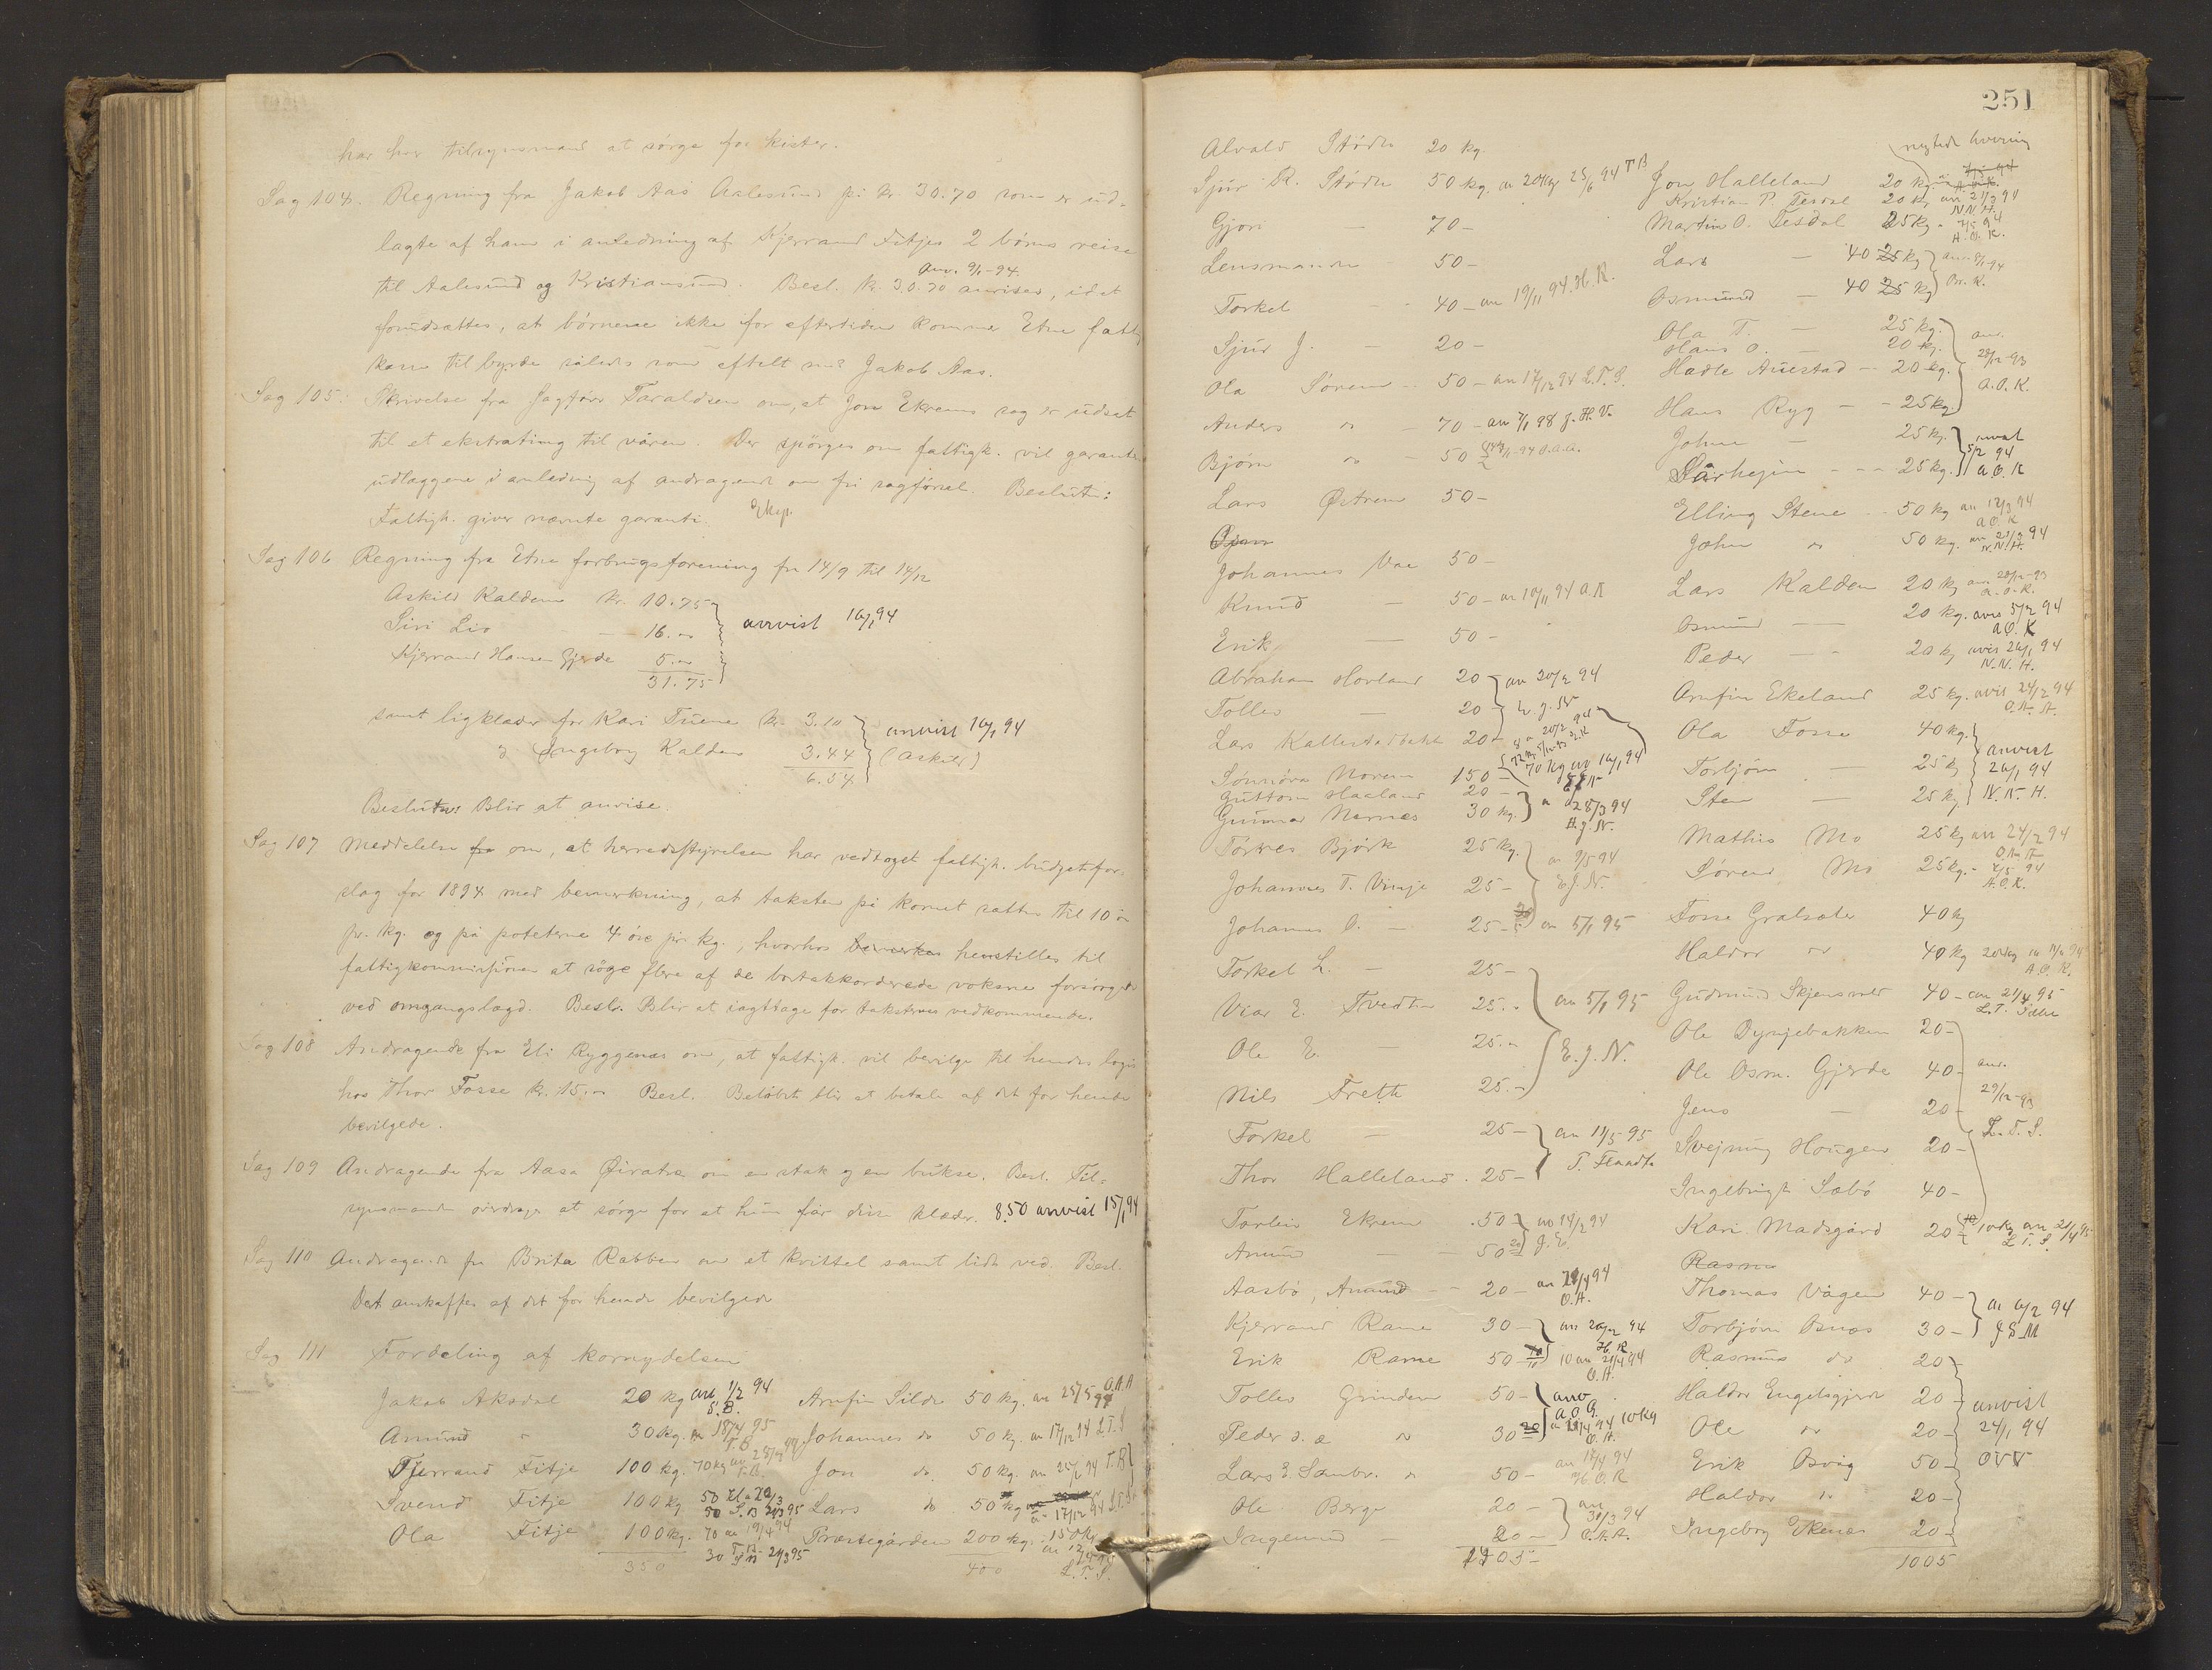 har her tilsynsmand at sørge for kister.
Sag 104. Regning fra Jakob Aas Aalesund på kr. 30.70 som er ud-
lagte af ham i anledning af Kjerrand Fitjes 2 børns reise
til Aalesund og Kristiansund. Besl. kr. 30.70 anvises, idet
Anv. 9/1-94.
forudsættes, at børnene ikke for eftertiden komme Etne fattig
kasse til byrde således som aftalt med Jakob Aas.
Sag 105: Skrivelse fra Sagfører Taraldsen om, at Jon Ekrems sag er udsat
til et ekstrating til våren. Der spørges om fattigk. vil garantere
udlæggene i anledning af andragende om fri sagførsel. Beslutn:
Fattigk. giver nævnte garanti. Eksp.
Sag 106 Regning fra Etne forbrugsforening fra 14/9 til 14/12
Askild Kaldem kr. 10.75
Siri Lio — 16. "
Kjerrand Hansen Gjerde 5. "
31.75
anvist 16/1 94
samt ligklæder for Kari Tueme kr. 3.10
og Ingeborg Kalden 3.44
6.54
anvist 16/1 94
(Askild)
Beslutn: Blir at anvise.
Sag 107 Meddelelse fra om, at herredsstyrelsen har vedtaget fattigk. budgetfor-
slag for 1894 med bemerkning, at taksten på kornet sættes til 10 ør
pr. kg. og på poteterne 4 øre pr. kg., hvorhos bemerkes henstilles til
fattigkommissionen at søge flere af de bortakkorderede voksne forsørget
ved omgangslægd. Besl. Blir at iagttage for taksternes vedkommende.
Sag 108 Andragende fra Eli Ryggenæs om, at fattigk. vil bevilge til hendes logis
hos Thor Fosse kr. 15. " Besl. Beløbet blir at betale af det for hende
bevilgede.
Sag 109 Andragende fra Aasa om en stak og en bukse. Besl. Til-
synsmanden overdrages at sørge for at hun får disse klæder. 8.50 anvist 15/1 94
Sag 110 Andragende fra Brita Rabben om et kvittel samt lidt ved. Besl.
Det anskaffes af det for hende bevilgede
Sag 111 Fordeling af kornydelsen
Jakob Aksdal 20 kg anv 1/2 94 S.B.
Amund " 30 kg. an 18/4 95 T.B
Tjerrand Fitje 100 kg. 70 kg an T.B.
Svend Fitje 100 kg 50 50
Ola Fitje 100 kg. 70 an 19/4 94 30 21/3 95
350
Arnfin Silde 50 kg. an 25/5 94 O.A.A
Johannes do 50 kg. an 17/12 94 L.T.S
Jon do. 50 kg. an 25/6 94 T.B
Lars do 50 kg an 17/12 94 L.T.S.
Præstegården 200 kg. 150 kg L.T.S.
400
251
Alvald Stødle 20 kg.
Sjur R. Stødle 50 kg. an 20 kg 25/6 94 T B
Gjøn — 70 -
Lensmanden 50 -
Torkel - 40 - an 19/11 94. H. R.
Sjur J. — 20 -
Ola Sørem - 50 - an 17/12 94 L.T.S.
Anders " - 70 - an 7/1 98 J. H. V.
Bjørn " - 50
Lars Østrem 50 -
Johannes Vae 50 -
Knud — 50 - an 10/1 94 A.K
Erik — 50 -
Abraham Hovland 20
Tolleo — 20
an 20/2 94
Lars 20
Sønnøva Norem 150 - 70 kg an 16/1 94
Guttorm Haaland 20 -
Gunnar Nernæs 30 kg.
a 28/3 94
H.J.N.
Torres Bjørk 25 kg.
Johannes T. Vinje 25 -
a 9/5 94
E.J.N.
Johannes O. — 25 - an 5/1 95
Torkel L. — 25 -
Viar E. Tvedten 25. "
Ole E. — 25. "
Nils Frette 25. -
an 5/1 95
E. J. N.
Torkel — 25 -
Thor Halleland. 25 -
an 11/5-95
Torleiv Ekrem 50
Amund — 50
an 14/2 94
J.E.
Aasbø, Amund - 20 - an 21/4 94 O.H.
Kjerrand Rame 30 -
an 26/2 94 H.R
Erik Rame 50 10 an 21/4 94 O.H.
Tolleo Grinden 50 - anv A.O.G.
Peder s. æ " 30 a 21/4 94 10 kg O.H.
Lars E. Sanbr. " 50 - an 17/4 94
Ole Berge 20 -
Ingemund 20 -
an 30/3 94
O.A.A.
1705 -
nægtede levering
Jon Halleland 20 kg.
Kristian P. Tesdal 20 kg an 21/3 94 N N H.
Martin O. Tesdal 25 kg - 7/5 94 A. O. K.
Lars — 40 25 kg
Osmund — 40 25 kg
Ola T. 25 kg.
Hans O. — 20 kg.
Hadle Austad - 20 kg.
Hans Ryg - - 25 kg.
anv.
28/12-93
A.O.K.
Johan — 25 kg.
Sørhejm - - - 25 kg.
anvist
5/2 94
A.O.K
Elling Stene - 50 kg an 12/3 94 A.O.K
John " 50 kg. an 21/3 94 N.N.H.
Lars Kalden 20 kg an 28/12-93 A.O.K.
Osmund — 20 kg. anv 5/2 94 A.O.K
Peder — - 20 kg anv 26/1 94 N.N.H.
Arnfin Ekeland 25 kg. anv 24/2 94 O.A.A.
Ola Fosse 40 kg.
Torbjørn — 25 kg
Sten — 25 kg
anvist
26/1 94
N.N.H.
Mathis Mo 25 kg an 24/2 94 O.A.A
Sørene Mo 25 kg. - 7/5 94 A.O.K.
Fosse Gralsæter 40 kg
Haldor " 40 kg 20 kg A.O.K.
Gudmund Skjensvold 40 - an 21/4 95
Ole Dyrsjebakken 20 -
Ole Osm. Gjerde 40 -
Jens — 20 -
Svejnung Hougen 20 -
Ingebrigt Sæbø 40 -
anv.
29/12-93
L.T.S.
Kari Madsgård 20 10 kg an 21/4 95 L.T.S.
Rasmus
Thomas Vågen 40 -
Torbjørn Osnæs 30 -
an 6/2 94
Rasmus do 20 -
Haldor Engelsgjerde 20 -
Ole " 20 -
Erik Osvåg 50 -
Haldor " 20 -
Ingeborg Ekenæs 20 -
anvist
24/1 94
1005